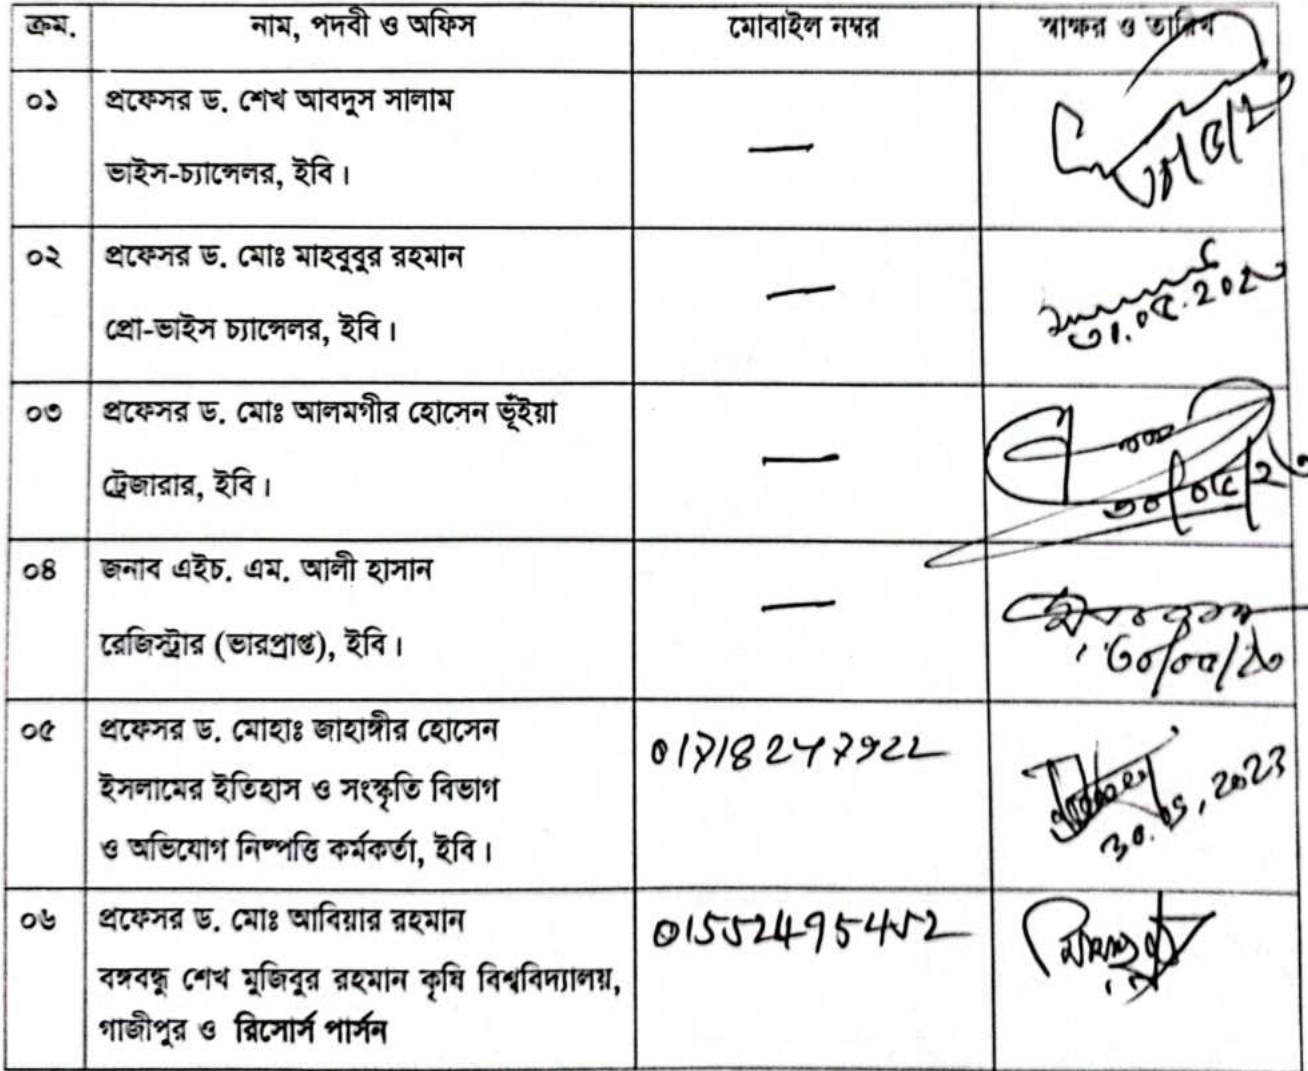 ক্রম. নাম, পদবী ও অফিস মোবাইল নম্বর স্বাক্ষর ও তারিখ
০১ প্রফেসর ড. শেখ আবদুস সালাম —
ভাইস-চ্যান্সেলর, ইবি।
০২ প্রফেসর ড. মোঃ মাহবুবুর রহমান —
প্রো-ভাইস চ্যান্সেলর, ইবি।
০৩ প্রফেসর ড. মোঃ আলমগীর হোসেন ভূঁইয়া —
ট্রেজারার, ইবি।
৩০/০৫/২৩
০৪ জনাব এইচ. এম. আলী হাসান —
রেজিস্ট্রার (ভারপ্রাপ্ত), ইবি।
৩০/০৫/২৩
০৫ প্রফেসর ড. মোহাঃ জাহাঙ্গীর হোসেন
ইসলামের ইতিহাস ও সংস্কৃতি বিভাগ
ও অভিযোগ নিষ্পত্তি কর্মকর্তা, ইবি।
30.05.2023
০৬ প্রফেসর ড. মোঃ আবিয়ার রহমান 01552495452
বঙ্গবন্ধু শেখ মুজিবুর রহমান কৃষি বিশ্ববিদ্যালয়,
গাজীপুর ও রিসোর্স পার্সন